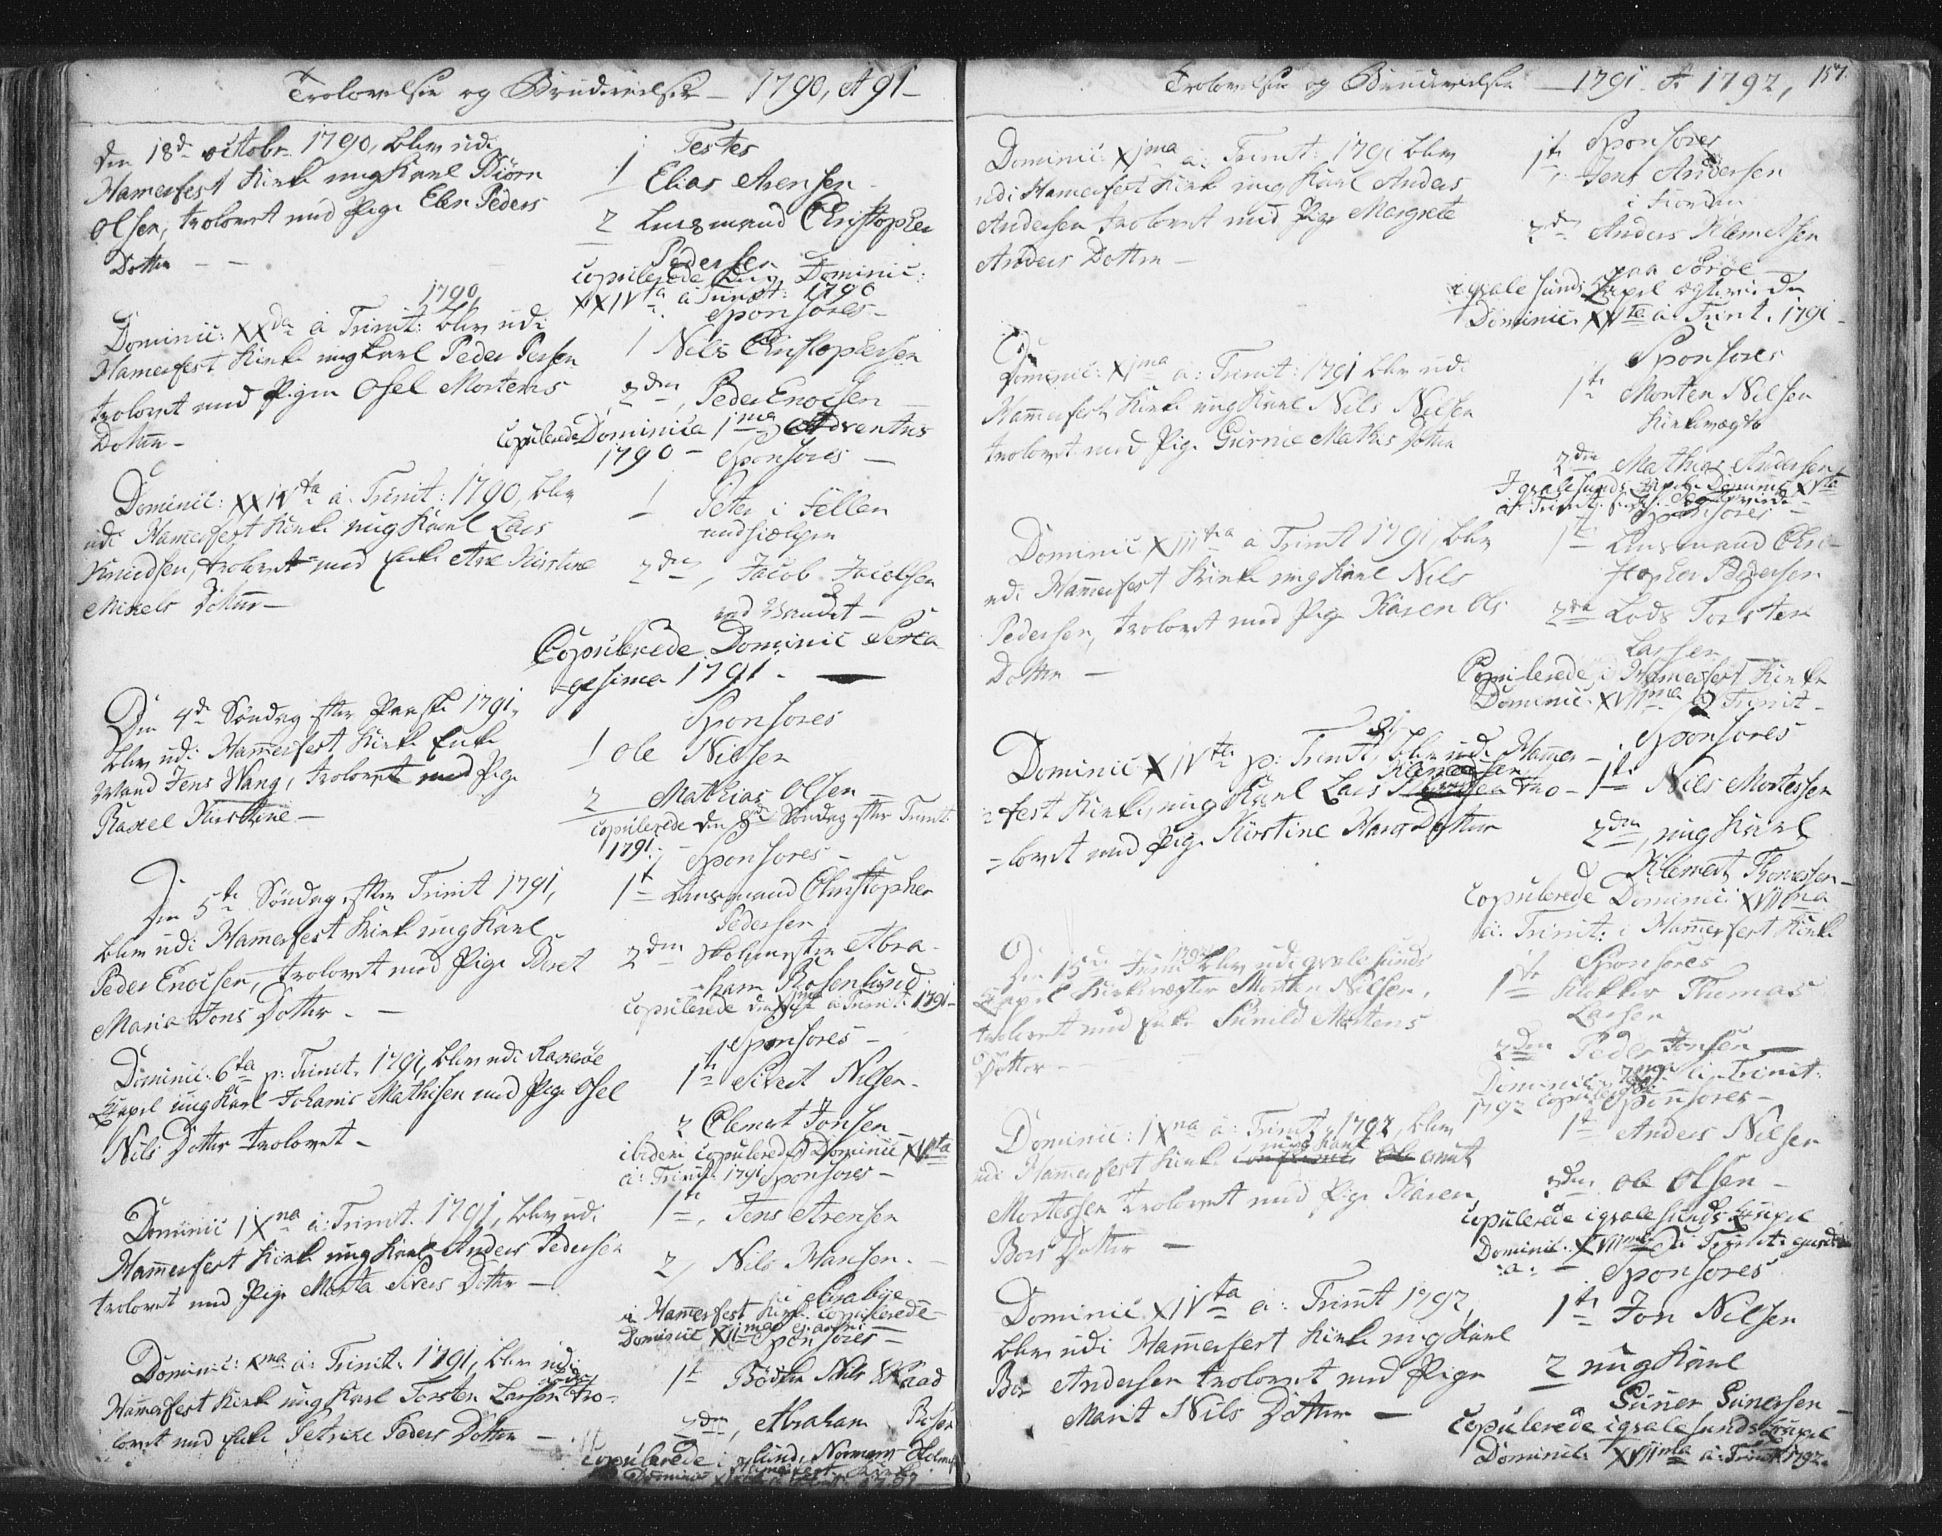 Trolovelse og Brudevielse – 1790, et 91 –
Den 18de octobr. 1790, blev udi
Hamerfest Kirke ungkarl Biörn
Olsen, trolovet med Pige Elen Peders
Dotter – –
Testes
1 Elias Arensen –
2 Lensmand Christopher
Pedersen
Copulerede Dominic:
XXIVta à Trinit: 1790
1790
Dominic: XXda à Trinit: blev udi
Hamerfest Kirke ungkarl Peder Persen
trolovet med Pigen Osel Mortens
Dotter –
Sponsores –
1 Nils Christophersen
2den, Peder Enochsen –
Copulerede Dominica 1ma Adventus
1790 –
Dominic: XXIVta à Trinit: 1790, blev
udi Hamerfest Kirke ungkarl Lars
Knudsen, trolovet med Enke Ane Kirstine
Mikels Dotter –
Sponsores –
1 Peter i Fellen
2den, Jacob Jacobsen
Copulerede Dominic Sexa
gesima 1791. –
Den 4de Söndag efter Paaske 1791,
blev udi Hamerfest Kirke Enke
Mand Jens Wang, trolovet med Pige
Raxel Kirstine –
Sponsores
1 Ole Nielsen
2 Mathias Olsen –
Copulerede den 8de Söndag efter Trinit:
1791.
Den 5te Söndag efter Trinit 1791,
blev udi Hamerfest Kirke ungkarl
Peder Enochsen, trolovet med Pige Beret
Maria Jons Dotter – –
Sponsores –
1te Lensmand Christopher
Pedersen
2den Skolemester Abra-
-ham Rosenlund
Copulerede à Trinit: 1791 –
Dominic: 6ta p: Trinit. 1791, blev udi
Capel ungkarl Johanis Mathisen med Pige Osel
Nils Dotter trolovet –
Sponsores –
1te Sivert Nilsen –
2 Clemet Jonsen –
ibidem copulerede Dominic
à: Trinit: 1791
Dominic IXna à: Trinit. 1791, blev udi
Hamerfest Kirke ungkarl Anders Pedersen
trolovet med Pige Marta Sivers Dotter –
Sponsores –
1te, Jens Arensen
2, Nils Hansen –
i Hamerfest Kirke copulerede –
Dominic: Xma à: Trinit. 1791, blev udi
Hamerfest Kirke ungkarl Torsten Larsen tro-
lovet med Enke Petrike Peders Dotter –
Sponsores –
1te Bödker Nils Waad
2den, Abraham Rosen
lund
Copulerede i
Trolovelse og Brudevielse – 1791. & 1792, 157.
Dominic: XIma à: Trinit: 1791 blev
udi Hamerfest Kirke ungkarl Anders
Andersen trolovet med Pige Margrete
Anders Dotter –
Sponsores
1te, Jens Andersen
i Fiorden
2den Anders Klemetsen
paa Söröe –
Dominic. XVta à Trinit. 1791 –
Dominic: XIma a: Trinit: 1791 blev udi
Hamerfest Kirke ungkarl Nils Nilsen
trolovet med Pige Gurnie Mathis Dotter
Sponsores
1te Morten Nilsen
Kirkevægte
2den Mathias Andersen
Dominic XIIItia a Trinit 1791, blev
udi Hamerfest Kirke ungkarl Nils
Pedersen, trolovet med Pige Karen Ols
Dotter –
Sponsores –
1te Lensmand Chri-
stopher Pedersen
2den Lods Torsten
Larsen
Copulerede i Hamerfest Kirke
Dominic: XVIIma à Trinit –
Dominic: XIVta p: Trinit, blev udi Hamer –
-fest Kirke, ungkarl Lars Klemetsen tro –
-lovet med Pige Kirstine Hans Dotter
Sponsores
1te Nils Mortessen
2den, ungkarl
Klemet Thomessen –
Copulerede Dominic: XVIIma
à: Trinit: i Hamerfest Kirke
Den 15de Junii 1792 blev udi qvalesunds
Capel Kirkevægter Morten Nilsen,
trolovet med Enke Mortens
Dotter – –
Sponsores
1te Klokker Tumas
Larsen
2den Peder Jonsen –
Dominic à Trinit:
1792 copulerede
Dominic: IXna à: Trinit, 1792, blev
udi Hamerfest Kirke ungkarl
Mortessen trolovet med Pige Karen
Bors Dotter –
Sponsores –
1te Anders Nilsen
2den Ole Olsen –
Copulerede i qvalesunds Capel
Dominic: XVIIma à: Trinit:
Dominic XIVta à: Trinit 1792,
blev udi Hamerfest Kirke ungkarl
Bor Andersen trolovet med Pige
Marit Nils Dotter –
Sponsores
1te Jon Nilsen
2 ungkarl
Guner Gunersen –
Copulerede i qvalesunds Capel
Dominic: XVIIma à: Trinit 1792.